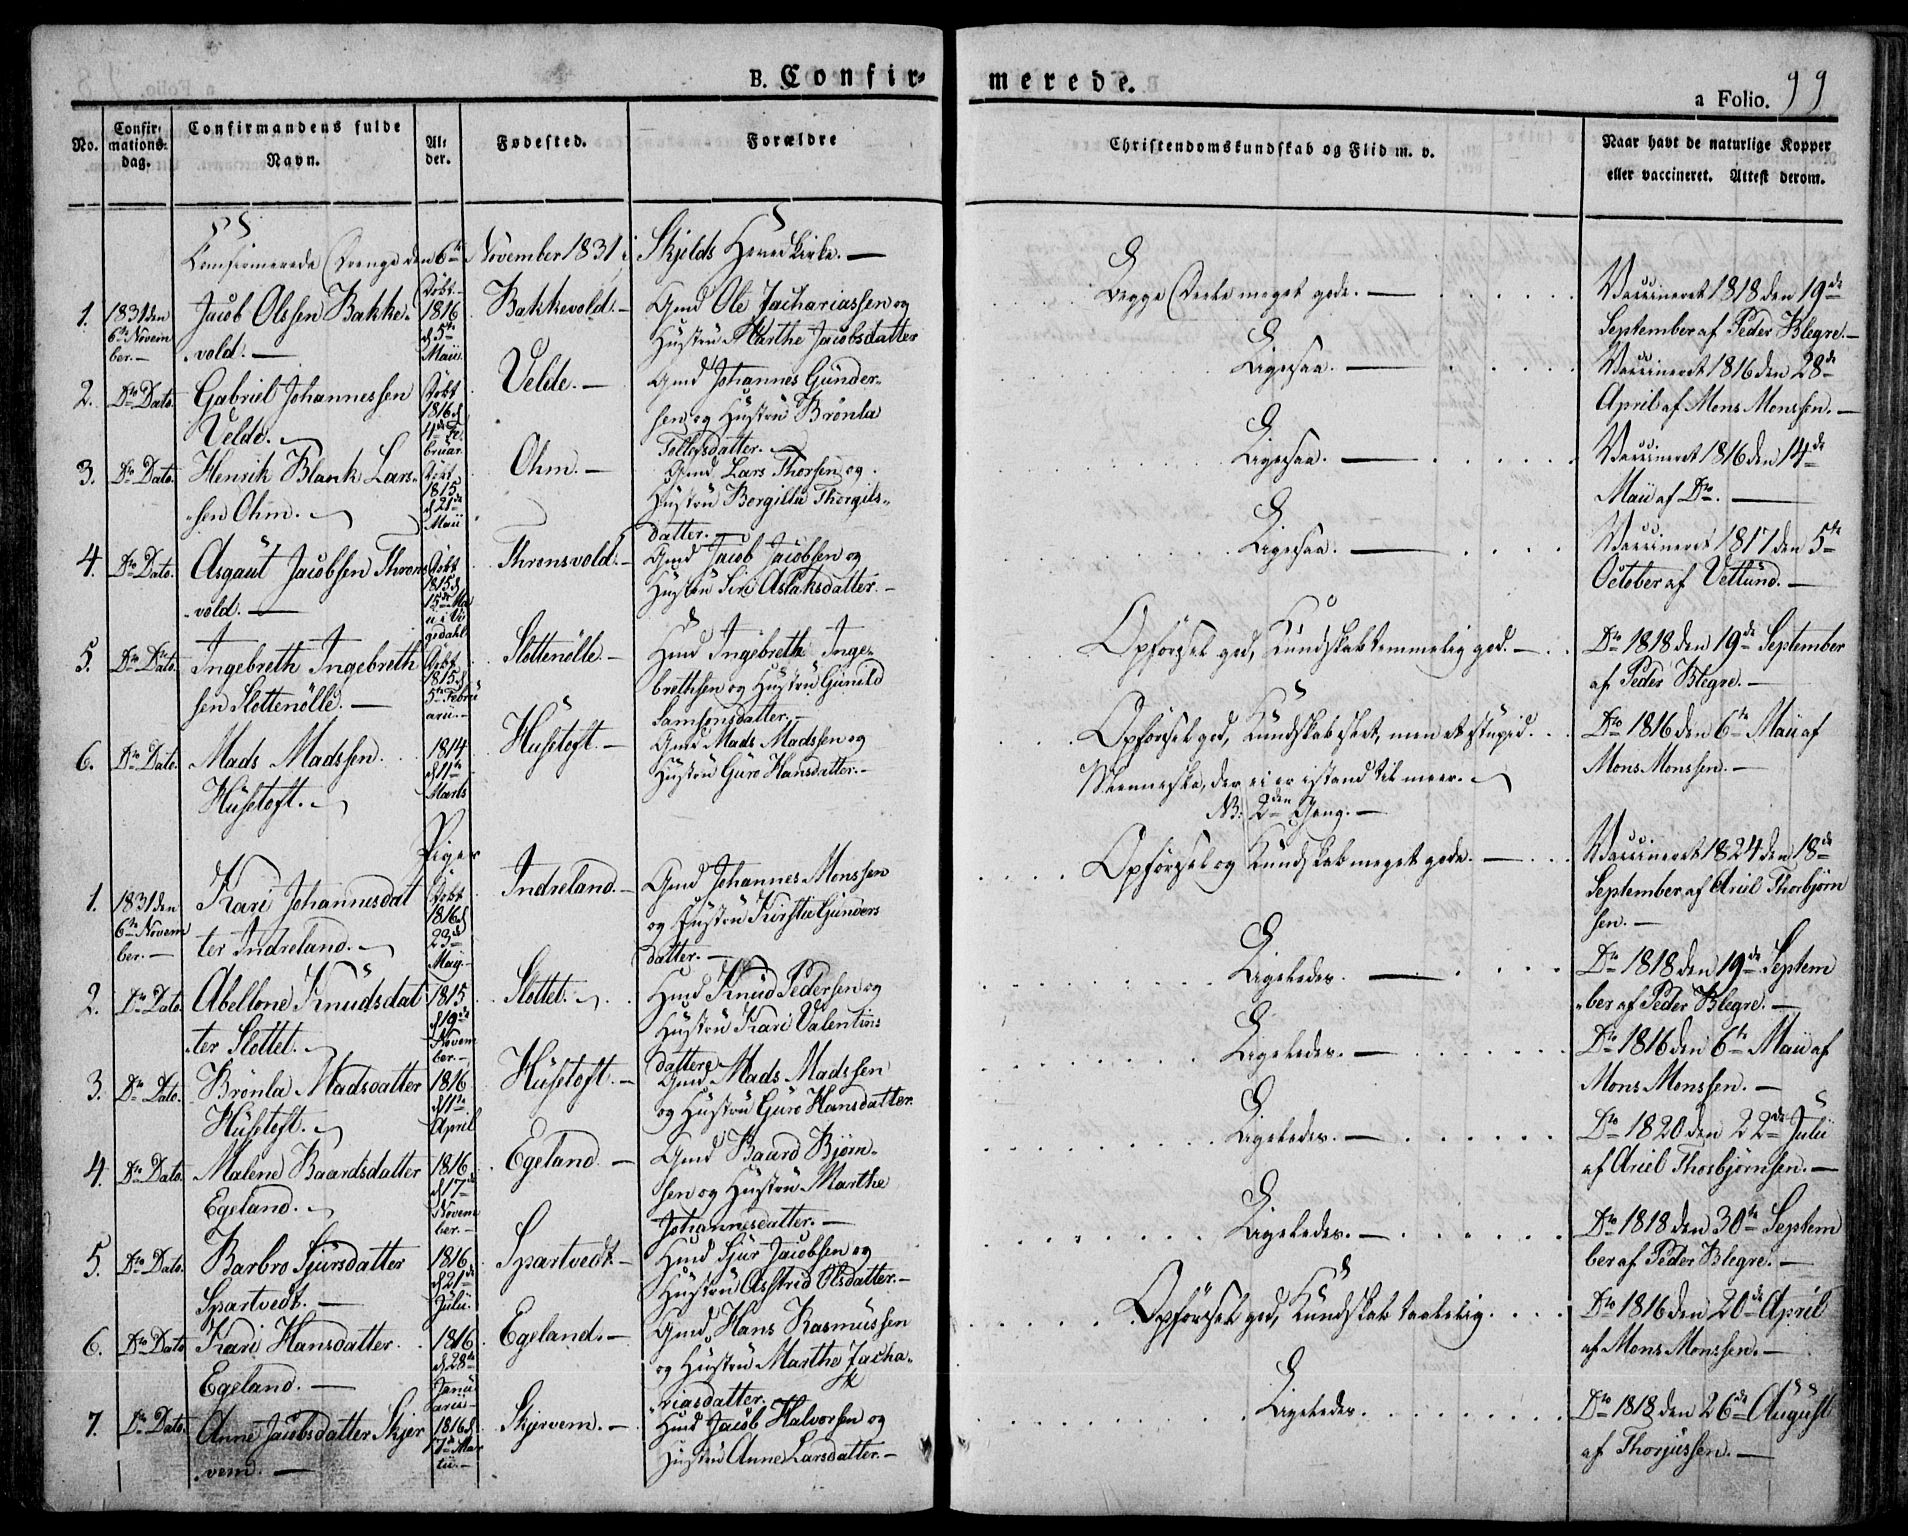 B. Confir-
merede.
a Folio. 99
No.
Confir-
mations-
dag.
Confirmandens fulde
Navn.
Al-
der.
Fødested.
Forældre
Christendomskundskab og Flid m. v.
Naar havt de naturlige Kopper
eller vaccineret. Attest derom.
Confirmerede Drenge den 6te November 1831 i Skjolds Hovedkirke. —
1.
1831 den
6te Novem
ber. —
Jacob Olssen Bakke-
vold. —
Døbt
1816
d 5te
Maii
Bakkevold. —
Gmd Ole Zachariassen og
Hustrü Marthe Jacobsdatter
Begge Deele meget gode. —
Vaccineret 1818 den 19de
September af Peder Blegre. —
2.
Do Dato.
Gabriel Johannessen
Velde. —
Døbt
1816 d
4de Fe-
bruar.
Velde. —
Gmd Johannes Günder-
sen og Hustrü Brønla
Tollevsdatter. —
Ligesaa. —
Vaccineret 1816 den 28de
April af Mons Monssen. —
3.
Do Dato.
Henrik Blank Lars-
sen Ohm. —
Døbt
1815
d 21de
Maii
Ohm. —
Gmd Lars Thorsen og
Hustrü Borgilla Thorgils-
datter. —
Ligesaa. —
Vaccineret 1816 den 14de
Maii af Do. —
4.
Do Dato.
Asgaüt Jacobsen Throns
vold. —
Døbt
1815 d
15de Ma
ii i Vi
gedahl
Thronsvold. —
Gmd Jacob Jacobsen og
Hustrü Siri Aslaksdatter. —
Ligesaa. —
Vaccineret 1817 den 5te
October af Vetlünd. —
5.
Do Dato.
Ingebreth Ingebreth
sen Slottenölle. —
Døbt
1815 d
5te Febru
arii. —
Slottenölle. —
Hmd Ingebreth Inge-
brethsen og Hustrü Günild
Samsonsdatter. —
Opförsel god, Kündskab temmelig god. —
Do 1818 den 19de September
af Peder Blegre. —
6.
Do Dato.
Mads Madssen
Hüsetoft. —
1814
d 11te
Marts
Hüsetoft. —
Gmd Mads Madssen og
Hustrü Güro Hansdatter. —
Opförsel god, Kündskab slet, men et stupid
Menneske, der ei er istand til meer. —
NB: 2den Gang. —
Do 1816 den 6te Maii af
Mons Monssen. —
Piger
1.
1831 den
6te Novem
ber. —
Kari Johannesdat
ter Indreland. —
Døbt
1816 d
23de
Maij —
Indreland. —
Gmd Johannes Monssen
og Hustrü Kirstie Günders
datter. —
Opförsel og Kündskab meget gode. —
Vaccineret 1824 den 18de
September af Ariel Thorbjørn
sen. —
2.
Do Dato.
Abellone Knüdsdat
ter Slottet. —
1815
d 19de
Novem
ber. —
Slottet. —
Hmd Knüd Pedersen og
Hustrü Kari Valentins
datter
Ligeledes. —
Do 1818 den 19de Septem
ber af Peder Blegre. —
3.
Do Dato.
Brönla Madsdatter
Hüsetoft. —
1816
d 11te
April
Hüsetoft. —
Gmd Mads Madssen
og Hustrü Güro Hansdatter.
Ligeledes. —
Do 1816 den 6te Maii af
Mons Monssen. —
4.
Do Dato.
Malene Baardsdatter
Egeland. —
1816
d 17de
Novem
ber. —
Egeland. —
Gmd Baard Bjørn-
sen og Hustrü Marthe
Johannesdatter. —
Ligeledes. —
Do 1820 den 22de Julii
af Ariel Thorbjörnsen. —
5.
Do Dato.
Barbro Sjursdatter
Spartvedt. —
1816
d 21de
Jülii.
Spartvedt. —
Hmd Sjur Jacobsen og
Hustrü Asstrid Olsdatter. —
Ligeledes. —
Do 1818 den 30te Septem
ber af Peder Blegre. —
6.
Do Dato
Kari Hansdatter
Egeland. —
1816
d 28de
Janu
arii —
Egeland. —
Gmd Hans Rasmüssen
og Hustrü Marthe Zacha-
riasdatter.
Opförsel god, Kündskab taalelig.
Do 1816 den 20de April
af Mons Monssen. —
7.
Do Dato.
Anne Jacobsdatter Skjer
vem. —
1816 d
7de Mar
tii. —
Skjervem. —
Hmd Jacob Halvorsen og
Hustrü Anne Larsdatter. —
Ligeledes.
Do 1818 den 26de August
af Thorjüssen. —